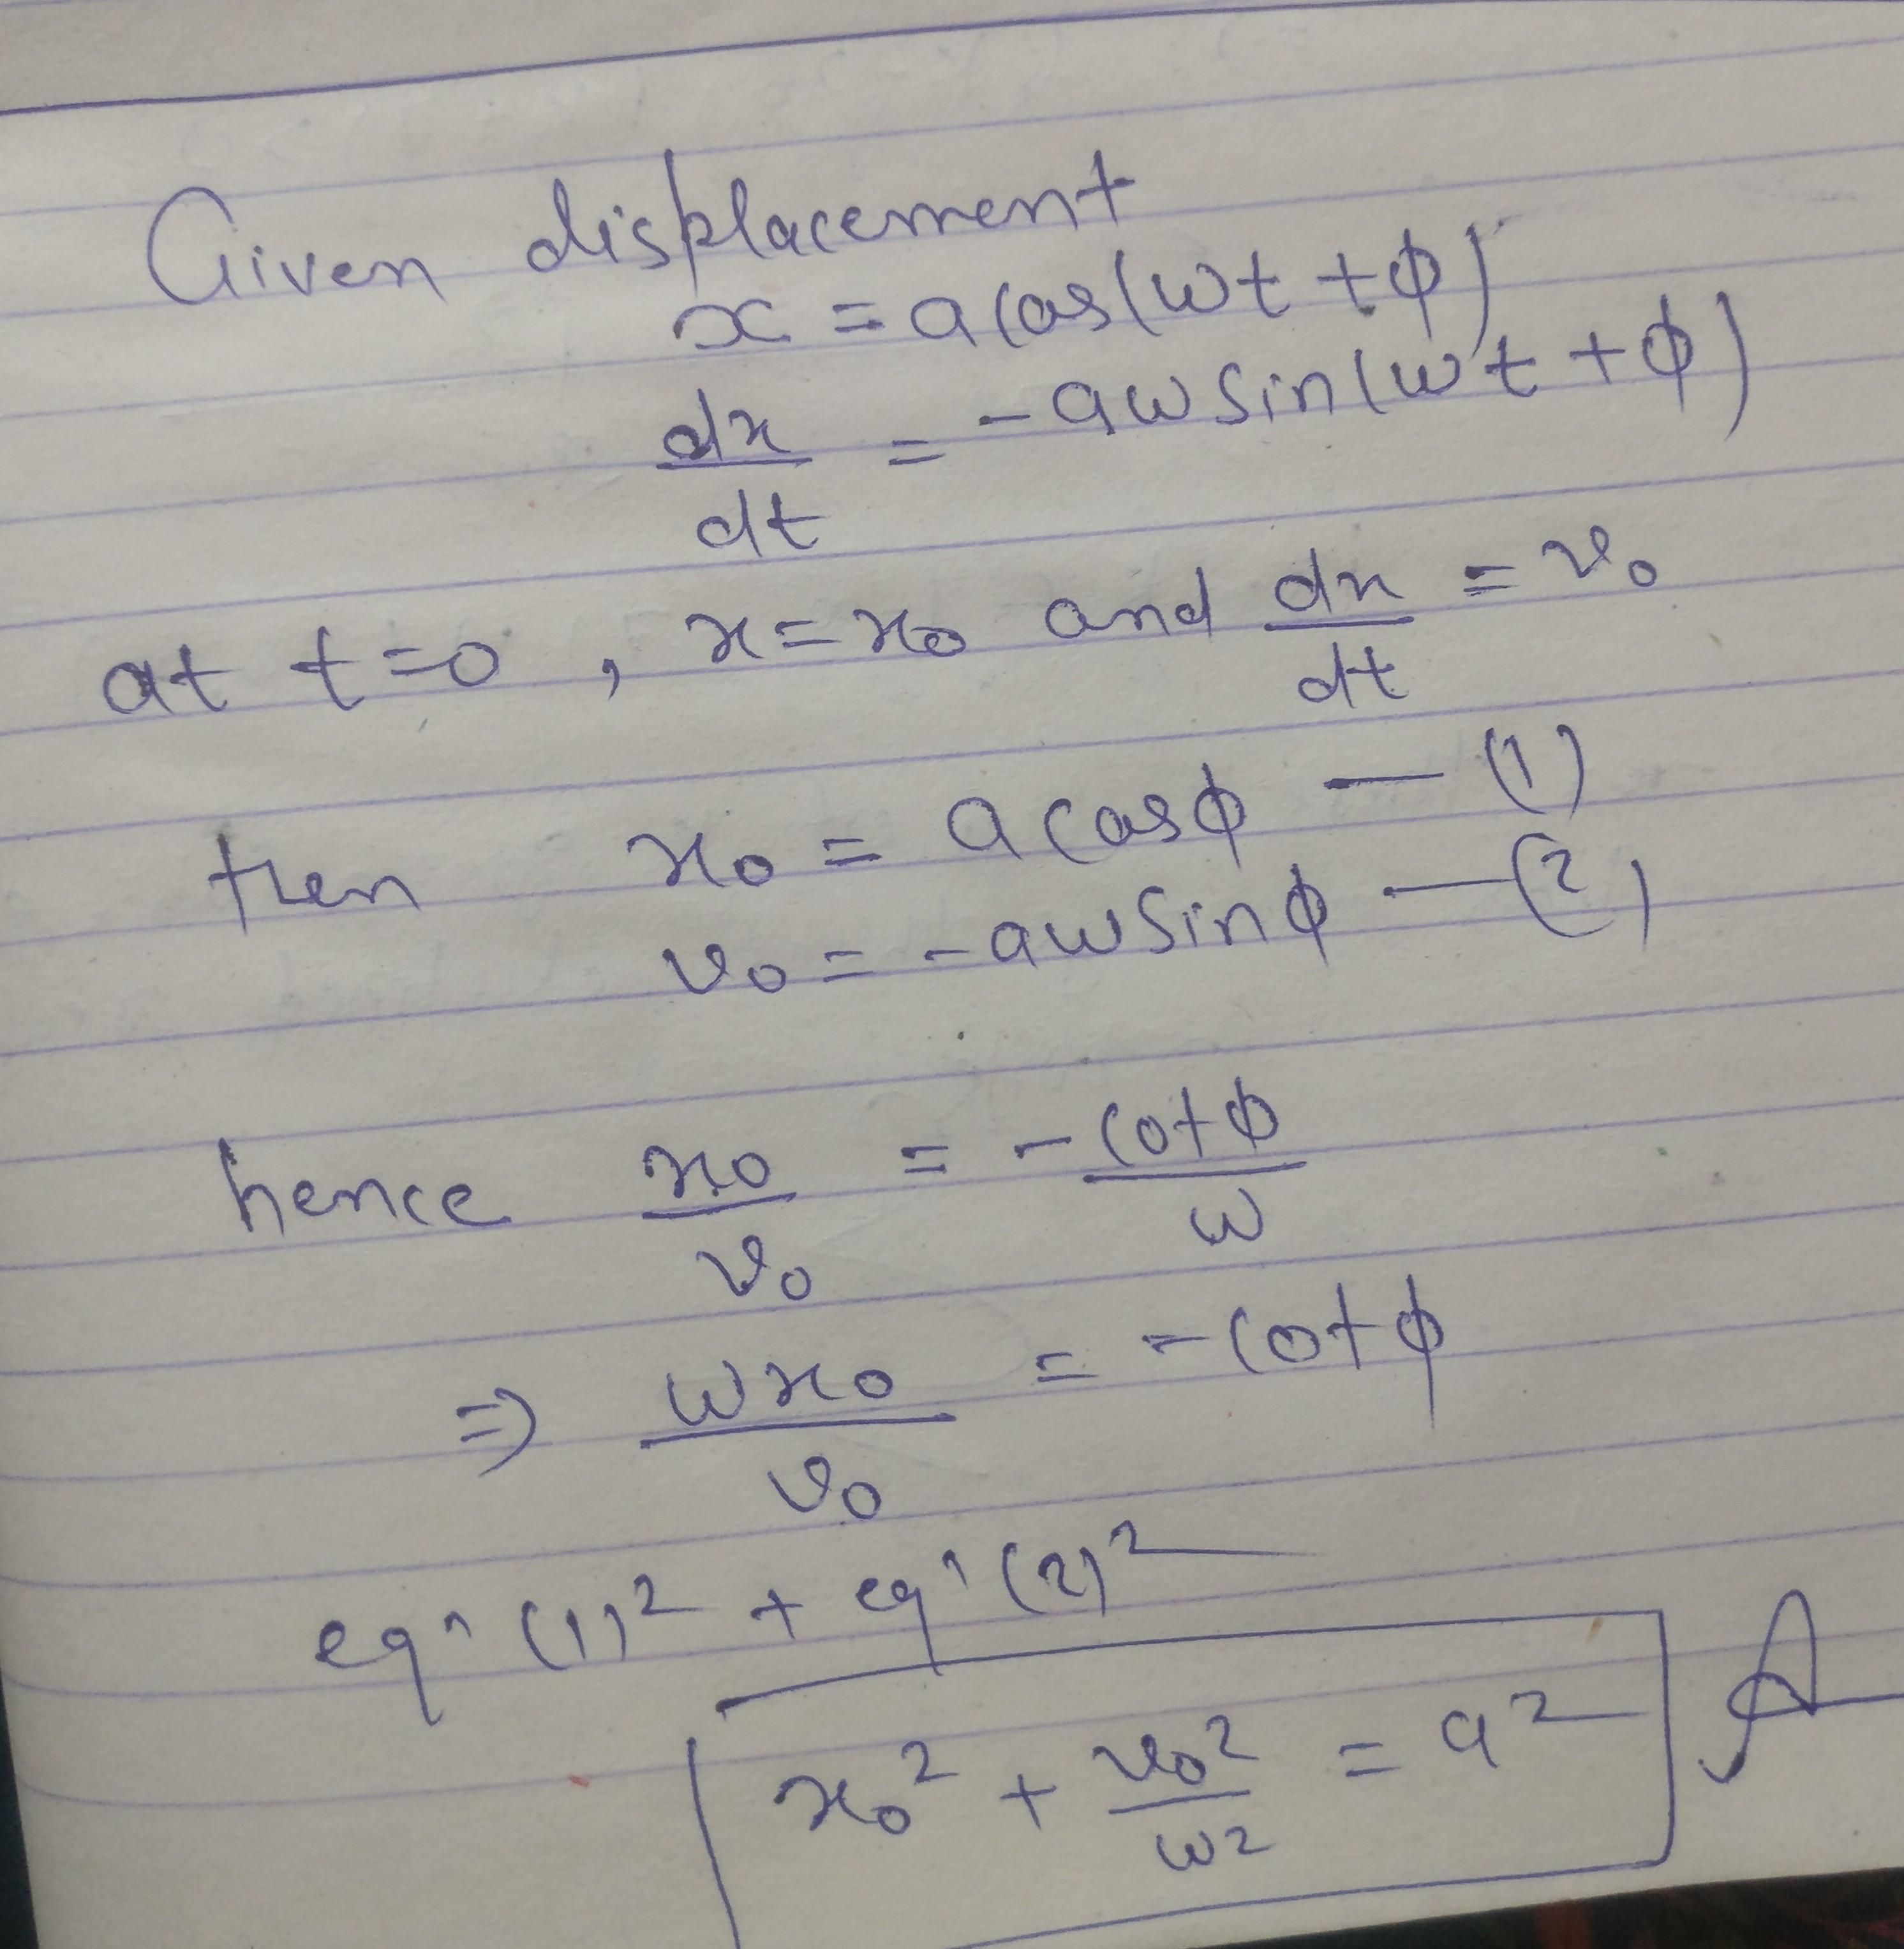 Given displacement
x = a cos(ωt + ϕ)
dx/dt = -aω sin(ωt + ϕ)
at t=0, x=x₀ and dx/dt = v₀
then x₀ = a cosϕ — (1)
v₀ = -aω sinϕ — (2)
hence x₀/v₀ = -cotϕ/ω
⇒ ωx₀/v₀ = -cotϕ
eqⁿ (1)² + eqⁿ (2)²
x₀² + v₀²/ω² = a²